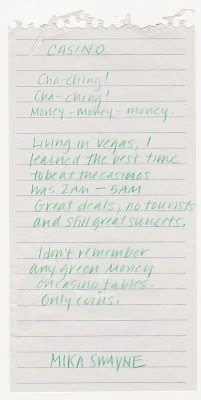 CASINO
Cha-ching!
Cha-ching!
Money-money-money.
Living in Vegas, I
learned the best time
to beat the casinos
was 2AM - 5AM
Great deals, no tourists
and still great suncets.
I don't remember
any green money
on casino tables.
Only coins.
MIKA SWAYNE